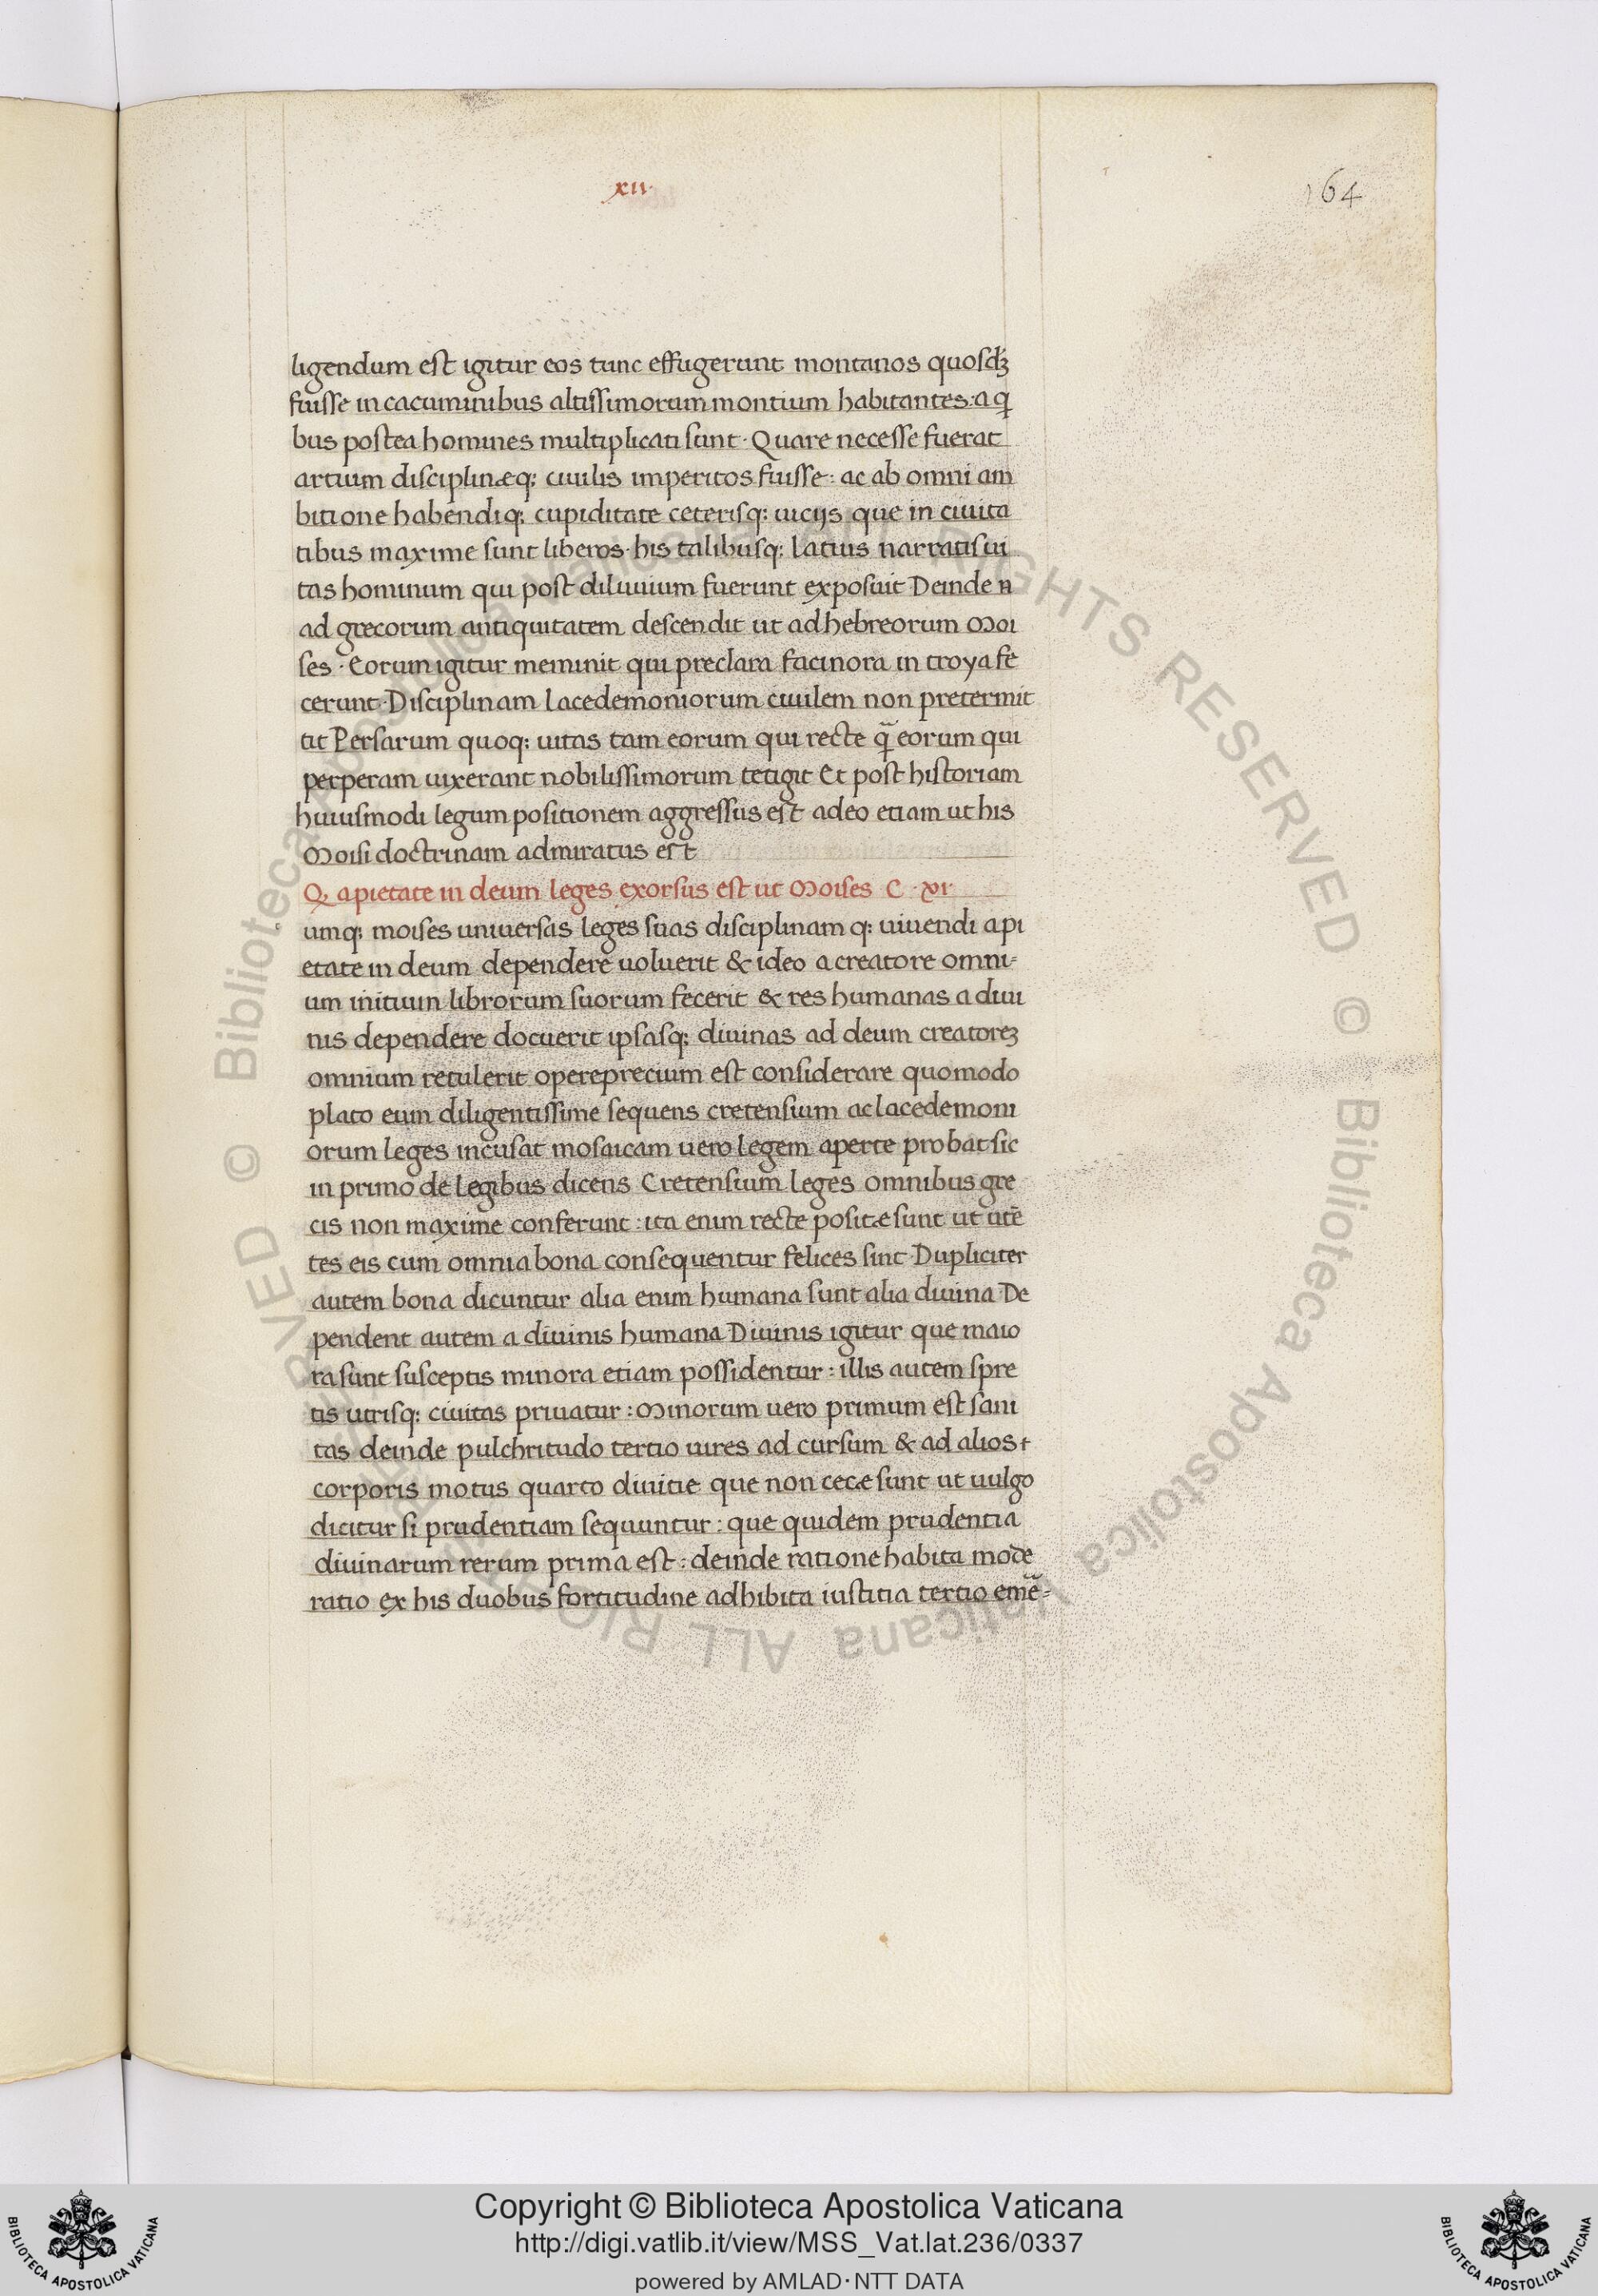 xii.
164
ligendum est igitur eos tunc effugerunt montanos quosdꝫ
fuisse in cacuminibus altissimorum montium habitantes. a q̄
bus postea homines multiplicati sunt. Quare necesse fuerat
artium disciplinæq; ciuilis imperitos fuisse: ac ab omni am
bitione habendiq; cupiditate ceterisq; uicijs que in ciuita
tibus maxime sunt liberos. his talibusq; latius narratis ui
tas hominum qui post diluuium fuerunt exposuit Deinde n̄
ad grecorum antiquitatem descendit ut ad hebreorum Moi
ses. Eorum igitur meminit qui preclara facinora in troya fe
cerunt. Disciplinam lacedemoniorum ciuilem non pretermit
tit Persarum quoq; uitas tam eorum qui recte q̃ eorum qui
perperam uixerant nobilissimorum tetigit Et post historiam
huiusmodi legum positionem aggressus est adeo etiam ut his
Moisi doctrinam admiratus est
Q. a pietate in deum leges exorsus est ut Moises C. xi
umq; moises uniuersas leges suas disciplinam q; uiuendi a pi
etate in deum dependere uoluerit & ideo a creatore omni-
um initium librorum suorum fecerit & res humanas a diui
nis dependere docuerit ipsasq; diuinas ad deum creatoreꝫ
omnium retulerit opereprecium est considerare quomodo
plato eum diligentissime sequens cretensium ac lacedemoni
orum leges incusat mosaicam uero legem aperte probat sic
in primo de legibus dicens Cretensium leges omnibus gre
cis non maxime conferunt: ita enim recte positæ sunt ut utē
tes eis cum omnia bona consequentur felices sint. Dupliciter
autem bona dicuntur alia enim humana sunt alia diuina De
pendent autem a diuinis humana Diuinis igitur que maio
ra sunt susceptis minora etiam possidentur: illis autem spre
tis utrisq; ciuitas priuatur: Minorum uero primum est sani
tas deinde pulchritudo tertio uires ad cursum & ad alios
corporis motus quarto diuitie que non cecæ sunt ut uulgo
dicitur si prudentiam sequuntur: que quidem prudentia
diuinarum rerum prima est: deinde ratione habita mode
ratio ex his duobus fortitudine adhibita iustitia tertio emē-
© Biblioteca Apostolica Vaticana ALL RIGHTS RESERVED © Biblioteca Apostolica Vaticana ALL RIGHTS RESERVED
Copyright © Biblioteca Apostolica Vaticana
http://digi.vatlib.it/view/MSS_Vat.lat.236/0337
powered by AMLAD·NTT DATA
BIBLIOTECA APOSTOLICA VATICANA
BIBLIOTECA APOSTOLICA VATICANA